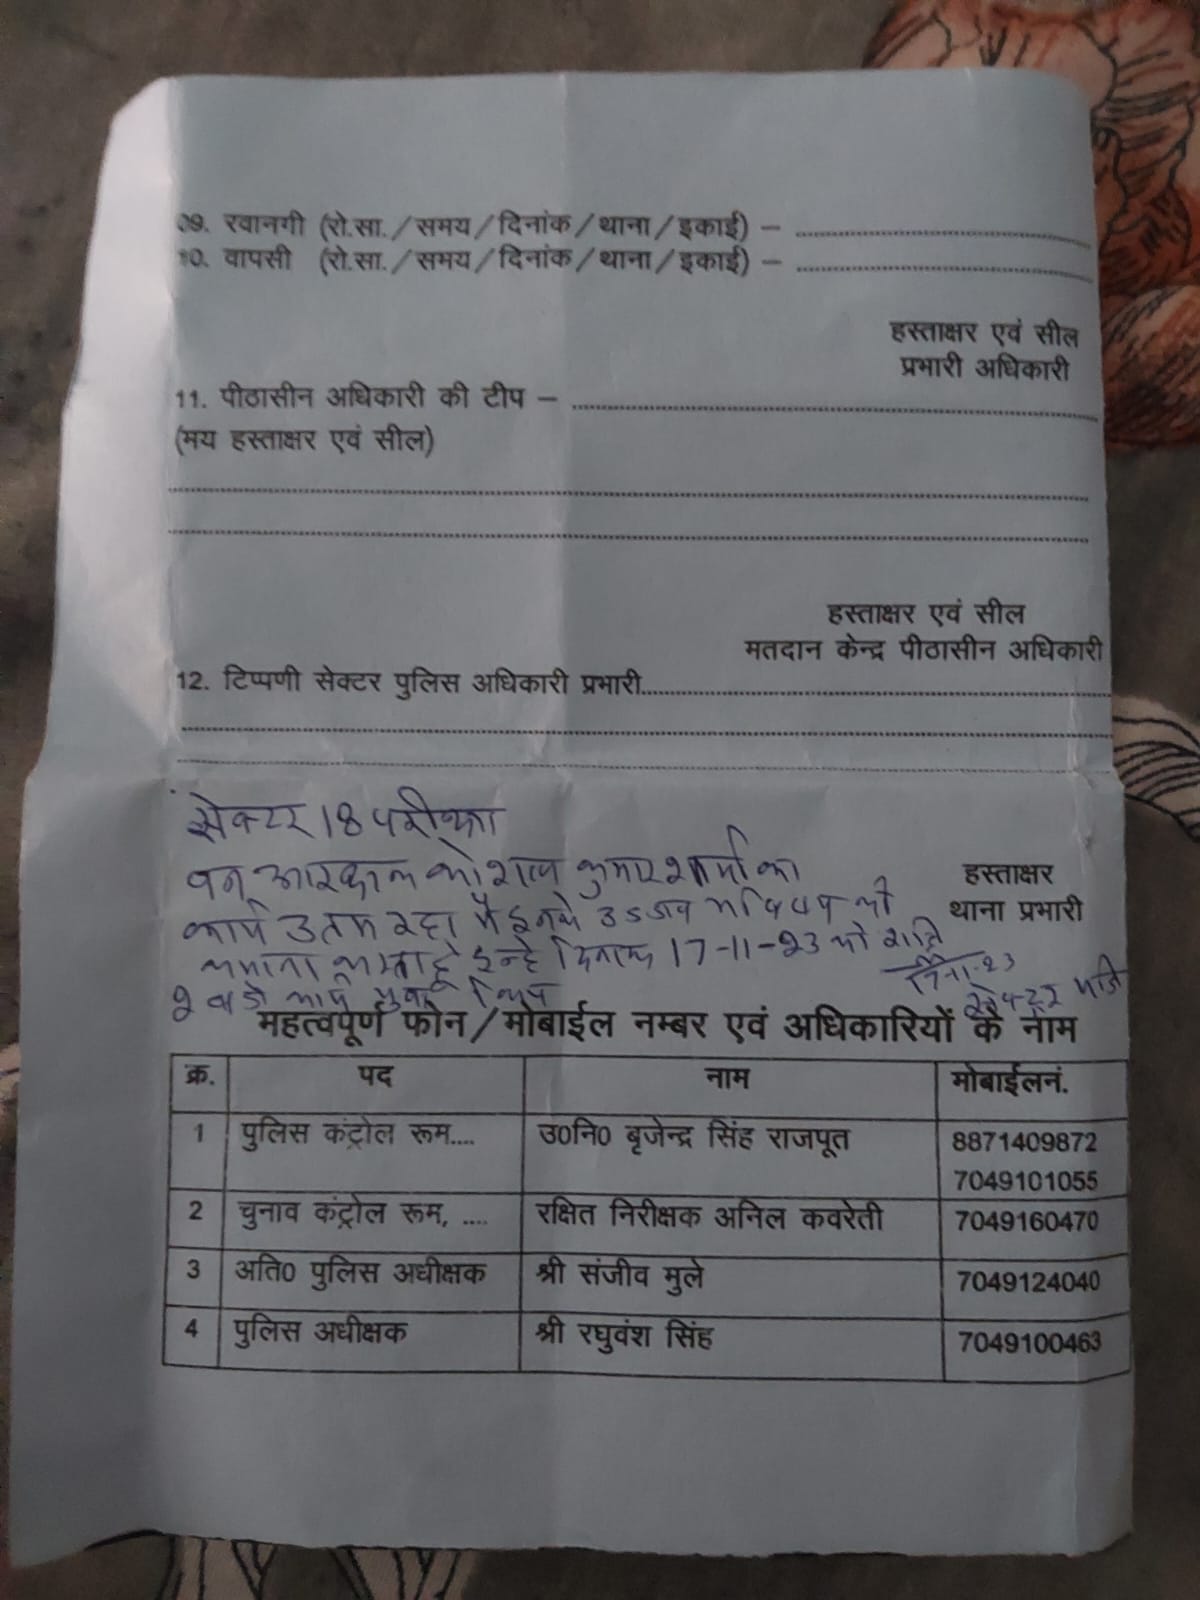 09. रवानगी (रो.सा./समय/दिनांक/थाना/इकाई) – ....................
10. वापसी (रो.सा./समय/दिनांक/थाना/इकाई) – ....................
हस्ताक्षर एवं सील
प्रभारी अधिकारी
11. पीठासीन अधिकारी की टीप – ....................
(मय हस्ताक्षर एवं सील)
हस्ताक्षर एवं सील
मतदान केन्द्र पीठासीन अधिकारी
12. टिप्पणी सेक्टर पुलिस अधिकारी प्रभारी....................
सेक्टर 18
वन आरक्षक कुमार शर्मा का
हस्ताक्षर
थाना प्रभारी
कार्य उतम रहा मैं इनके भविष्य की
कामना करता हूँ इन्हे दिनांक 17-11-23 को रात्रि
17-11-23
9 बजे कार्य मुक्त किया
सेक्टर
महत्वपूर्ण फोन/मोबाईल नम्बर एवं अधिकारियों के नाम
क्र. पद नाम मोबाईलनं.
1 पुलिस कंट्रोल रूम.... उ0नि0 बृजेन्द्र सिंह राजपूत 8871409872
7049101055
2 चुनाव कंट्रोल रूम, .... रक्षित निरीक्षक अनिल कवरेती 7049160470
3 अति0 पुलिस अधीक्षक श्री संजीव मुले 7049124040
4 पुलिस अधीक्षक श्री रघुवंश सिंह 7049100463